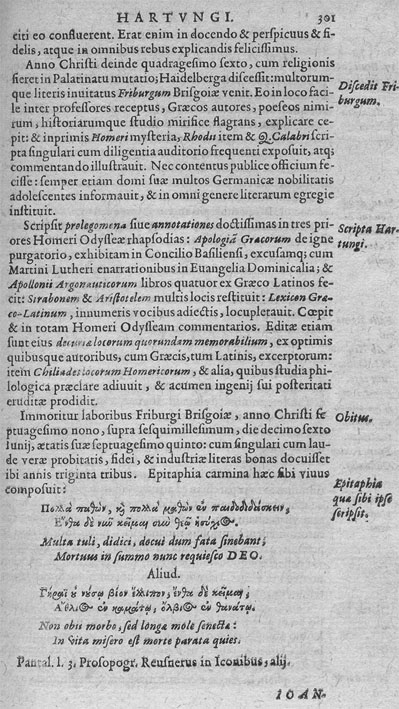 HARTVNGI. 301
citi eo confluerent. Erat enim in docendo & perspicuus & fi-
delis, atque in omnibus rebus explicandis felicissimus.
Anno Christi deinde quadragesimo sexto, cum religionis
fieret in Palatinatu mutatio; Haidelberga discessit: multorum-
que literis inuitatus Friburgum Brisgoiæ venit. Eo in loco faci-
Discedit Fri-
burgum.
le inter professores receptus, Græcos autores, poeseos nimi-
rum, & historiarumque studio mirifice flagrans, explicare cœ-
pit: & inprimis Homeri mysteria, Rhodii item & Q. Calabri scri-
pta singulari cum diligentia auditorio frequenti exposuit, atq;
commendando illustrauit. Nec contentus publice officium fe-
cisse: semper etiam domi suæ multos Germanicæ nobilitatis
adolescentes informauit, & in omni genere literarum egregie
instituit.
Scripsit prolegomena siue annotationes doctissimas in tres pri-
Scripta Har-
tungi.
ores Homeri Odysseæ rhapsodias: Apologiã Græcorum de igne
purgatorio, exhibitam in Concilio Basiliensi, excusamq; cum
Martini Lutheri enarrationibus in Euangelia Dominicalia; &
Apollonii Argonauticorum libros quatuor ex Græco Latinos fe-
cit: Strabonem & Aristotelem multis locis restituit: Lexicon Græ-
co-Latinum, innumeris vocibus adiectis, locupletauit. Cœpit
& in totam Homeri Odysseam commentarios. Editæ etiam
sunt eius decuriæ locorum quorundam memorabilium, ex optimis
quibusque autoribus, cum Græcis, tum Latinis, excerptorum:
item Chiliades locorum Homericorum, & alia, quibus studia phi-
lologica præclare adiuuit, & acumen ingenij sui posteritati
eruditæ prodidit.
Immoritur laboribus Friburgi Brisgoiæ, anno Christi se
Obitus.
ptuagesimo nono, supra sesquimillesimum, die decimo sexto
Iunij, ætatis suæ septuagesimo quinto: cum singulari cum lau-
de veræ probitatis, fidei, & industriæ literas bonas docuisset
ibi annis triginta tribus. Epitaphia carmina hæc sibi viuus
Epitaphia
quæ sibi ipse
scripsit.
composuit:
Πολλὰ παθὼν, καὶ πολλὰ μαθὼν ἐν παιδοδιδάσκειν,
Ἐνθα δὲ νῦν κεῖμαι σὺν θεῷ ἡσύχιος.
Multa tuli, didici, docui dum fata sinebant;
Mortuus in summo nunc requiesco DEO.
Aliud.
Γήραϊ οὐ νόσῳ βίον ἔλλιπον, ἔνθα δὲ κεῖμαι,
Ἄθλιος ἐν καμάτῳ, ὄλβιος ἐν θανάτῳ.
Non obii morbo, sed longæ mole senectæ:
In vita misero est morte parata quies.
Pantal. l. 3. Prosopogr. Reusnerus in Iconibus, alij.
IOAN-